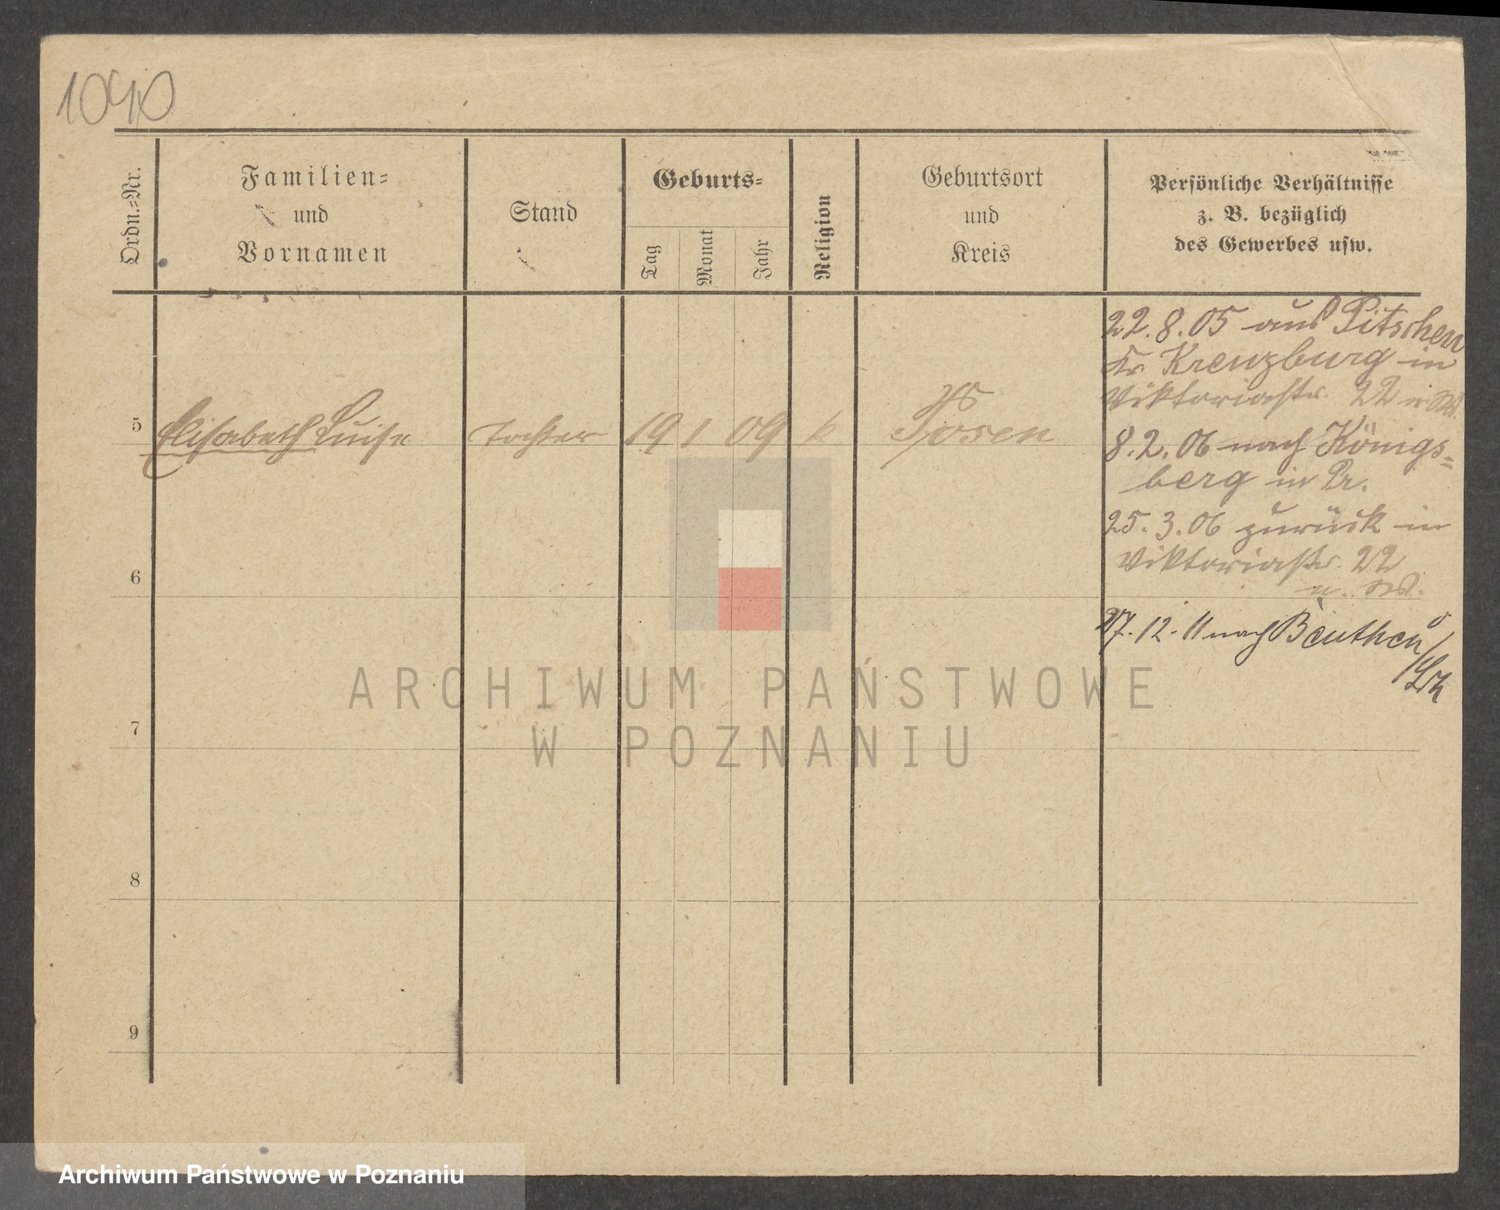 1040
Ordn.=Nr.
Familien=
und
Vornamen
Stand
Geburts=
Tag
Monat
Jahr
Religion
Geburtsort
und
Kreis
Persönliche Verhältnisse
z. B. bezüglich
des Gewerbes usw.
5 Elisabeth Luise Tochter 19 1 09 k Posen
22.8.05 aus Pitschen
Kr. Kreuzburg in
Viktoriastr. 22
8.2.06 nach Königs=
berg in Pr.
25.3.06 zurück in
Viktoriastr. 22
27.12.11 nach Beuthen
6
7
8
9
ARCHIWUM PAŃSTWOWE
W POZNANIU
Archiwum Państwowe w Poznaniu